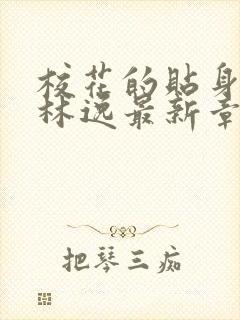 校花的贴身
林逸最新章
把琴三痴